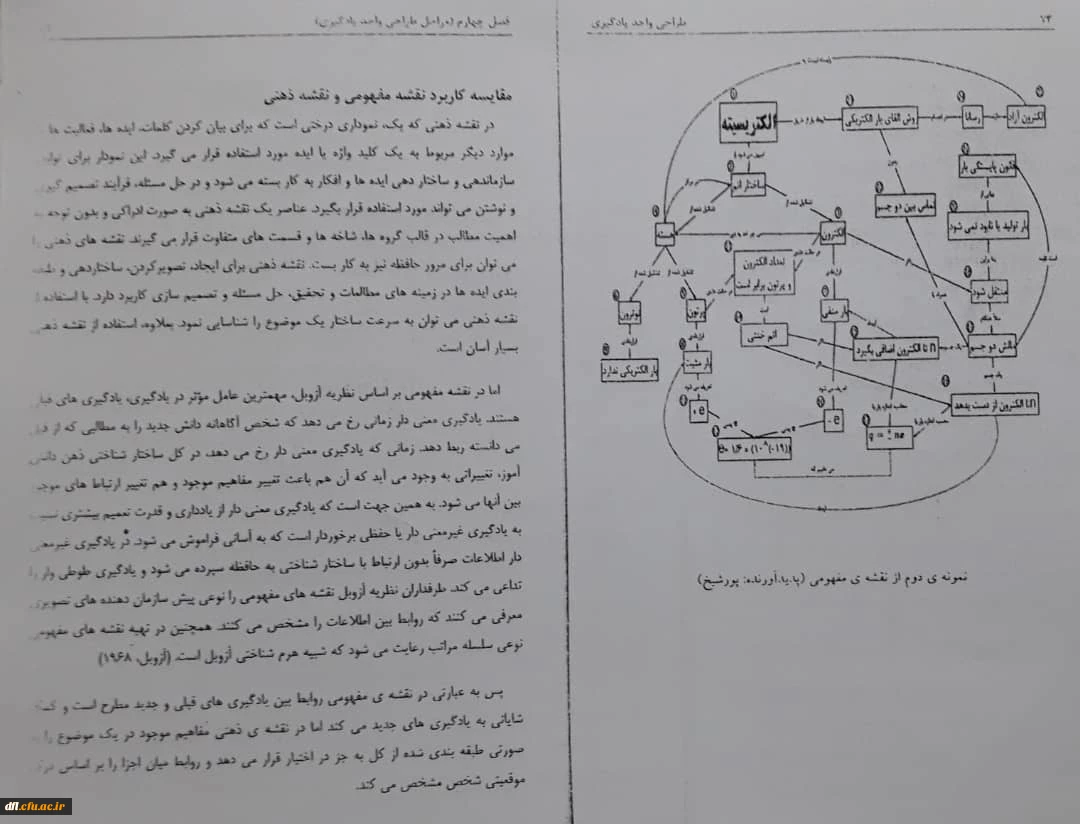 ۷۴
طراحی واحد یادگیری
الکتریسیته
روش القای بار الکتریکی
رسانا
الکترون آزاد
قانون پایستگی بار
ساختار اتم
تماس بین دو جسم
بار تولید یا نابود نمی شود
هسته
الکترون
تعداد الکترون
و پرتون برابر است
منتقل شود
نوترون
پرتون
بار منفی
اتم خنثی
n تا الکترون اضافی بگیرد
مالش دو جسم
بار الکتریکی ندارد
بار مثبت
n تا الکترون از دست بدهد
+ e
- e
q = ± ne
نمونه ی دوم از نقشه ی مفهومی (پدیدآورنده: پورشیخ)
فصل چهارم (مراحل طراحی واحد یادگیری)
مقایسه کاربرد نقشه مفهومی و نقشه ذهنی
در نقشه ذهنی که یک، نموداری درختی است که برای بیان کردن کلمات، ایده ها، فعالیت ها
موارد دیگر مربوط به یک کلید واژه یا ایده مورد استفاده قرار می گیرد. این نمودار برای
سازماندهی و ساختار دهی ایده ها و افکار به کار بسته می شود و در حل مسئله، فرآیند تصمیم گیری
و نوشتن می تواند مورد استفاده قرار بگیرد. عناصر یک نقشه ذهنی به صورت ادراکی و بدون توجه به
اهمیت مطالب در قالب گروه ها، شاخه ها و قسمت های متفاوت قرار می گیرند. نقشه های ذهنی را
می توان برای مرور حافظه نیز به کار بست. نقشه ذهنی برای ایجاد، تصویرکردن، ساختاردهی و طبقه
بندی ایده ها در زمینه های مطالعات و تحقیق، حل مسئله و تصمیم سازی کاربرد دارد. با استفاده از
نقشه ذهنی می توان به سرعت ساختار یک موضوع را شناسایی نمود. بعلاوه، استفاده از نقشه ذهنی
بسیار آسان است.
اما در نقشه مفهومی بر اساس نظریه آزوبل، مهمترین عامل مؤثر در یادگیری، یادگیری های قبلی
هستند. یادگیری معنی دار زمانی رخ می دهد که شخص آگاهانه دانش جدید را به مطالبی که از قبل
می دانسته ربط دهد. زمانی که یادگیری معنی دار رخ می دهد، در کل ساختار شناختی ذهن دانش
آموز، تغییراتی به وجود می آید که آن هم باعث تغییر مفاهیم موجود و هم تغییر ارتباط های موجود
بین آنها می شود. به همین جهت است که یادگیری معنی دار از یادداری و قدرت تعمیم بیشتری نسبت
به یادگیری غیرمعنی دار یا حفظی برخوردار است که به آسانی فراموش می شود. در یادگیری غیرمعنی
دار اطلاعات صرفاً بدون ارتباط با ساختار شناختی به حافظه سپرده می شود و یادگیری طوطی وار را
تداعی می کند. طرفداران نظریه آزوبل نقشه های مفهومی را نوعی پیش سازمان دهنده های تصویری
معرفی می کنند که روابط بین اطلاعات را مشخص می کنند. همچنین در تهیه نقشه های مفهومی
نوعی سلسله مراتب رعایت می شود که شبیه هرم شناختی آزوبل است. (آزوبل، ۱۹۶۸)
پس به عبارتی در نقشه ی مفهومی روابط بین یادگیری های قبلی و جدید مطرح است و کمک
شایانی به یادگیری های جدید می کند اما در نقشه ی ذهنی مفاهیم موجود در یک موضوع را به
صورتی طبقه بندی شده از کل به جز در اختیار قرار می دهد و روابط میان اجزا را بر اساس
موقعیتی شخص مشخص می کند.
dfl.cfu.ac.ir